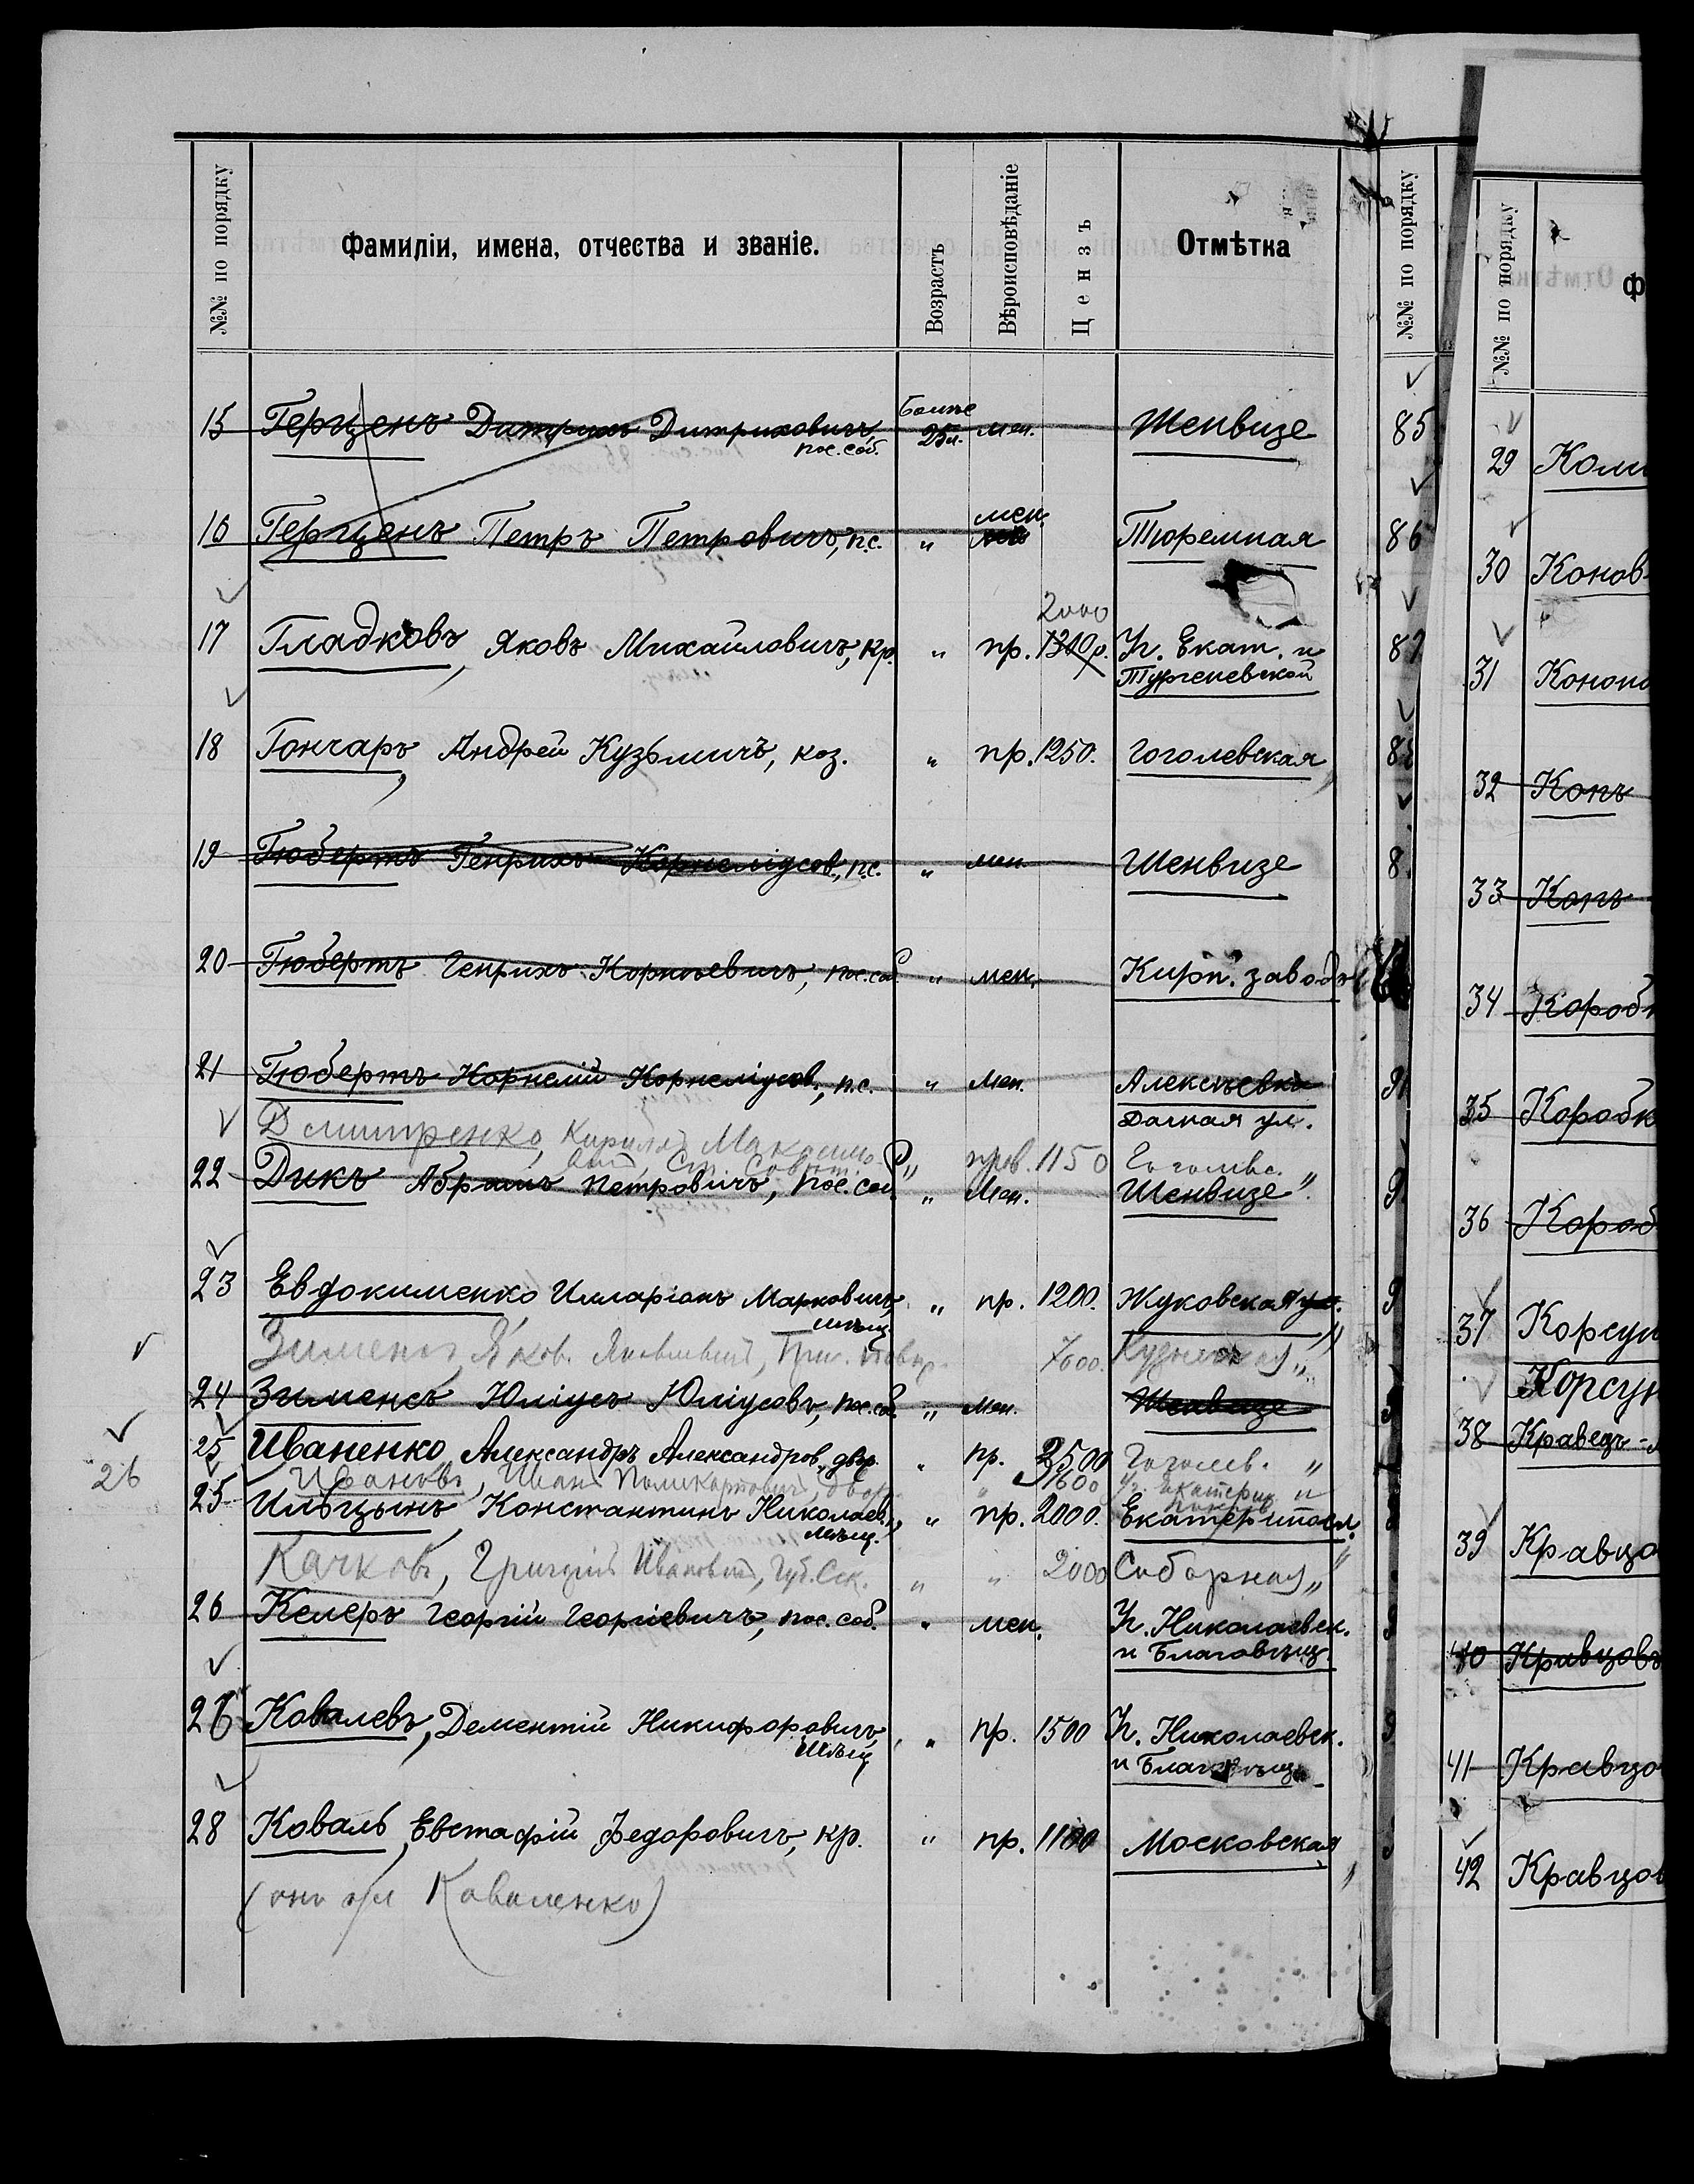 №№ по порядку Фамиліи, имена, отчества и званіе. Возрастъ Вѣроисповѣданіе Цензъ Отмѣтка №№ по порядку №№ по порядку Ф
15 Герценъ Дитрихъ Дитриховичъ, пос. соб. Болѣе 25 л. мен. Шенвизе
16 Герценъ Петръ Петровичъ, п.с. " мен. Тюремная
2000
17 Гладковъ, Яковъ Михайловичъ, кр. " пр. 1300 р. Уг. Екат. и
Тургеневской
18 Гончаръ, Андрей Кузьмичъ, коз. " пр. 1250. Гоголевская
19 Гюбертъ Генрихъ Корнеліусов., п.с. " мен. Шенвизе
20 Гюбертъ Генрихъ Корнѣевичъ, пос. соб. " мен. Кирп. заводъ
21 Гюбертъ Корнелій Корнеліусов., п.с. " Мен. Алексѣевка
Дачная ул.
Дмитренко, Кирилъ Максимо- " прав. 1150 Гоголевс. "
вичъ, Ст. Совѣт.
22 Дикъ Абрамъ Петровичъ, пос. соб. " Мен. Шенвизе
23 Евдокименко Илларіонъ Марковичъ, мѣщ. " пр. 1200. Жуковская ул.
Зименсъ, Яков. Яковлевичъ, 7600.
24 Зименсъ Юліусъ Юліусовъ, пос. соб. " мен. Шенвизе
25 Иваненко Александръ Александров., двр. " пр. 3500 Гоголев. "
26
Ивановъ, Иванъ Поликарповичъ, двор. " 1600 Уг. Екатерин. и
25 Ильцынъ Константинъ Николаев., мѣщ. " пр. 2000. Екатериносл.
Качковъ, Григорій Ивановичъ, Губ. Сек. " " 2000 Соборная "
26 Келеръ Георгій Георгіевичъ, пос. соб. " мен. Уг. Николаевск.
и Благовѣщ.
26 Ковалевъ, Дементій Никифоровичъ, мѣщ. " пр. 1500 Уг. Николаевск.
и Благовѣщ.
28 Коваль, Евстафій Федоровичъ, кр. " пр. 1100 Московская
(онъ же Коваленко)
85
86
87
29
30 Конов
31
32 Копъ
33 Копъ
34 Короб
35 Коробк
36 Короб
37 Корсун
Корсун
38 Кравецъ
39 Кравцо
40 Кравцовъ
41 Кравцо
42 Кравцов